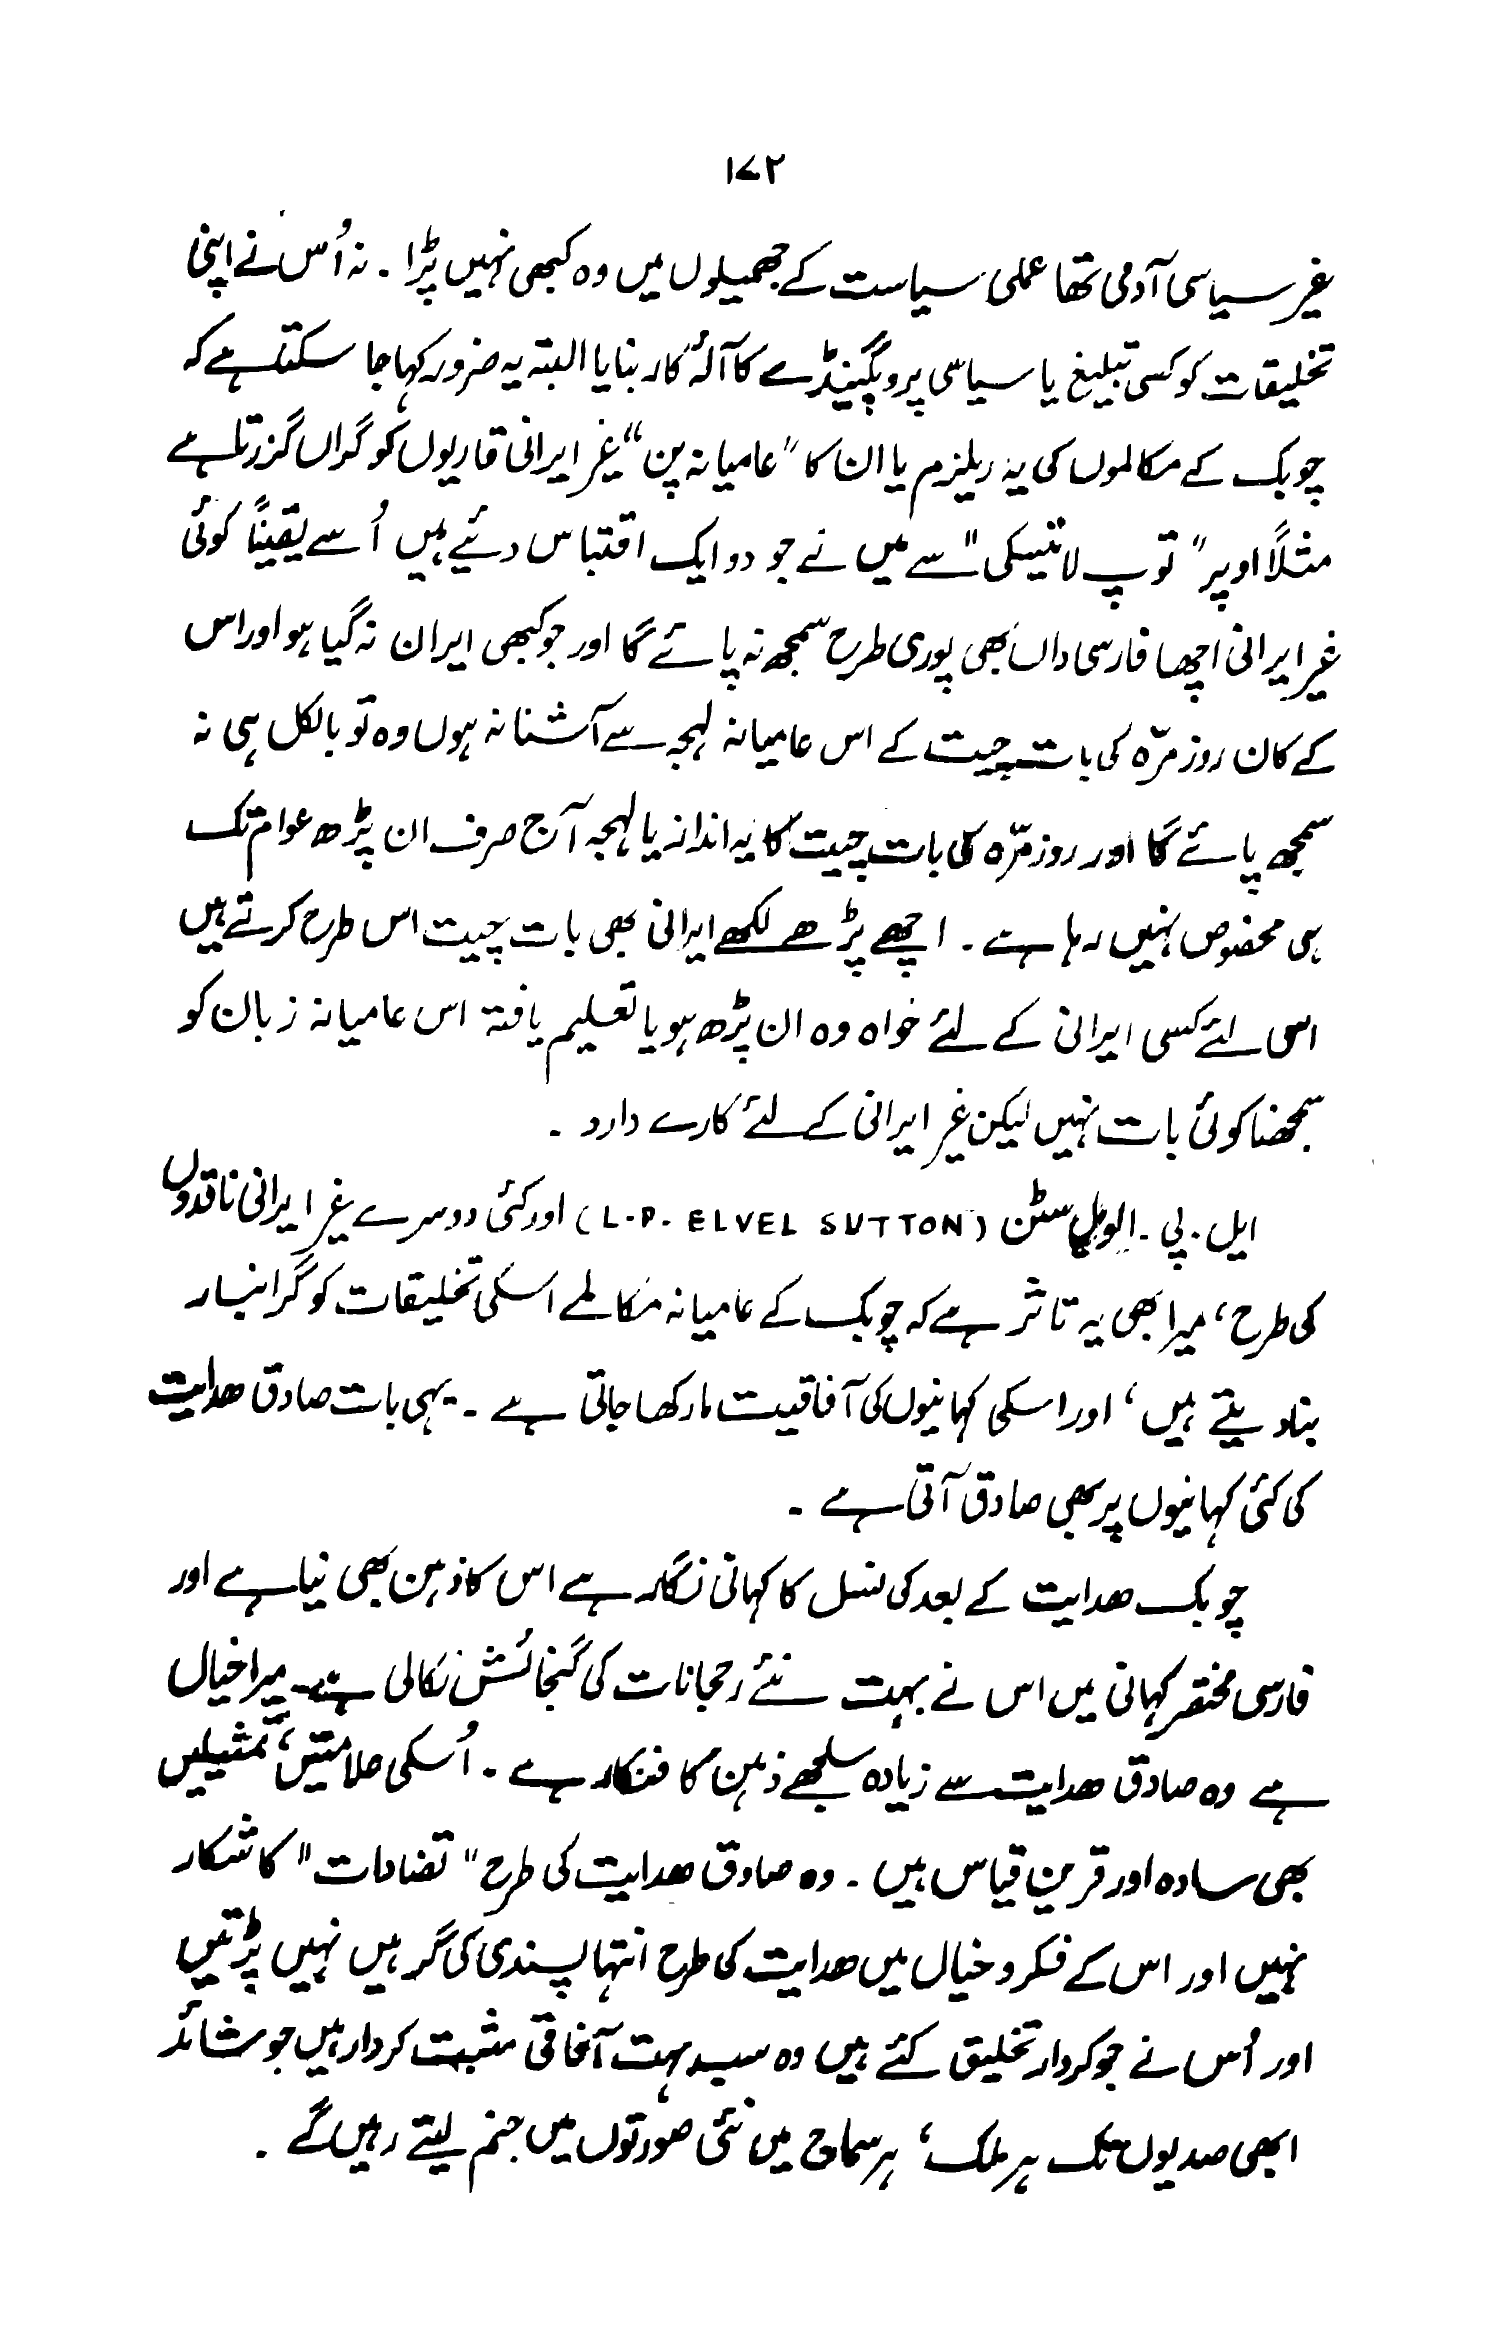 ۱۷۲
غیر سیاسی آدمی تھا عملی سیاست کے جھمیلوں میں وہ کبھی نہیں پڑا ۔ نہ اُس نے اپنی
تخلیقات کو کسی تبلیغ یا سیاسی پروپگینڈے کا آلۂ کار بنایا البتہ یہ ضرور کہا جا سکتا ہے کہ
چوبک کے مکالموں کی یہ ریلزم یا ان کا "عامیانہ پن" غیر ایرانی قاریوں کو گراں گزرتا ہے
مثلاً اوپر "توپ لاتیسکی" سے میں نے جو دو ایک اقتباس دئیے ہیں اُسے یقیناً کوئی
غیر ایرانی اچھا فارسی داں بھی پوری طرح سمجھ نہ پائے گا اور جو کبھی ایران نہ گیا ہو اور اس
کے کان روز مرّہ کی بات چیت کے اس عامیانہ لہجہ سے آشنا نہ ہوں وہ تو بالکل ہی نہ
سمجھ پائے گا اور روز مرّہ کی بات چیت کا یہ انداز یا لہجہ آج صرف ان پڑھ عوام تک
ہی مخصوص نہیں رہا ہے ۔ اچھے پڑھے لکھے ایرانی بھی بات چیت اس طرح کرتے ہیں
اس لئے کسی ایرانی کے لئے خواہ وہ ان پڑھ ہو یا تعلیم یافتہ اس عامیانہ زبان کو
سمجھنا کوئی بات نہیں لیکن غیر ایرانی کے لئے کارے دارد ۔
ایل ۔ پی ۔ الویل سٹن (L.P. ELVEL SUTTON) اور کئی دوسرے غیر ایرانی ناقدوں
کی طرح، میرا بھی یہ تاثر ہے کہ چوبک کے عامیانہ مکالمے اسکی تخلیقات کو گرانبار
بنا دیتے ہیں، اور اسکی کہانیوں کی آفاقیت مار کھا جاتی ہے ۔ یہی بات صادق ھدایت
کی کئی کہانیوں پر بھی صادق آتی ہے ۔
چوبک ھدایت کے بعد کی نسل کا کہانی نگار ہے اس کا ذہن بھی نیا ہے اور
فارسی مختصر کہانی میں اس نے بہت نئے رجحانات کی گنجائش نکالی ہے۔ میرا خیال
ہے وہ صادق ھدایت سے زیادہ سلجھے ذہن کا فنکار ہے ۔ اُسکی علامتیں، تمثیلیں
بھی سادہ اور قرین قیاس ہیں ۔ وہ صادق ھدایت کی طرح "تضادات" کا شکار
نہیں اور اس کے فکر و خیال میں ھدایت کی طرح انتہا پسندی کی گرہیں نہیں پڑتیں
اور اُس نے جو کردار تخلیق کئے ہیں وہ سب بہت آفاقی مثبت کردار ہیں جو شائد
ابھی صدیوں تک ہر ملک، ہر سماج میں نئی صورتوں میں جنم لیتے رہیں گے ۔